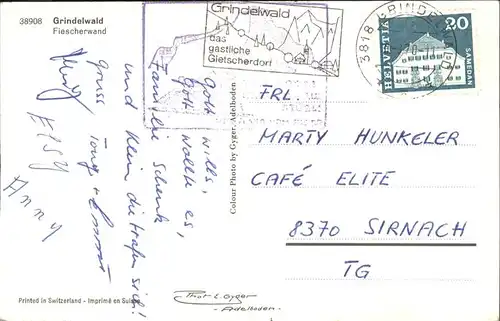 38908 Grindelwald
Fiescherwand
Grindelwald
das
gastliche
Gletscherdorf
3818 GRINDELWALD
HELVETIA 20
SAMEDAN
Gott will's,
Gott wollte es,
Familie Schenk
und Klein die trafen sich!
Gruss
ELSY
Anny
Colour Photo by Gyger, Adelboden
FRL.
MARTY HUNKELER
CAFÉ ELITE
8370 SIRNACH
TG
Printed in Switzerland - Imprimé en Suisse
Phot. E. Gyger
- Adelboden -